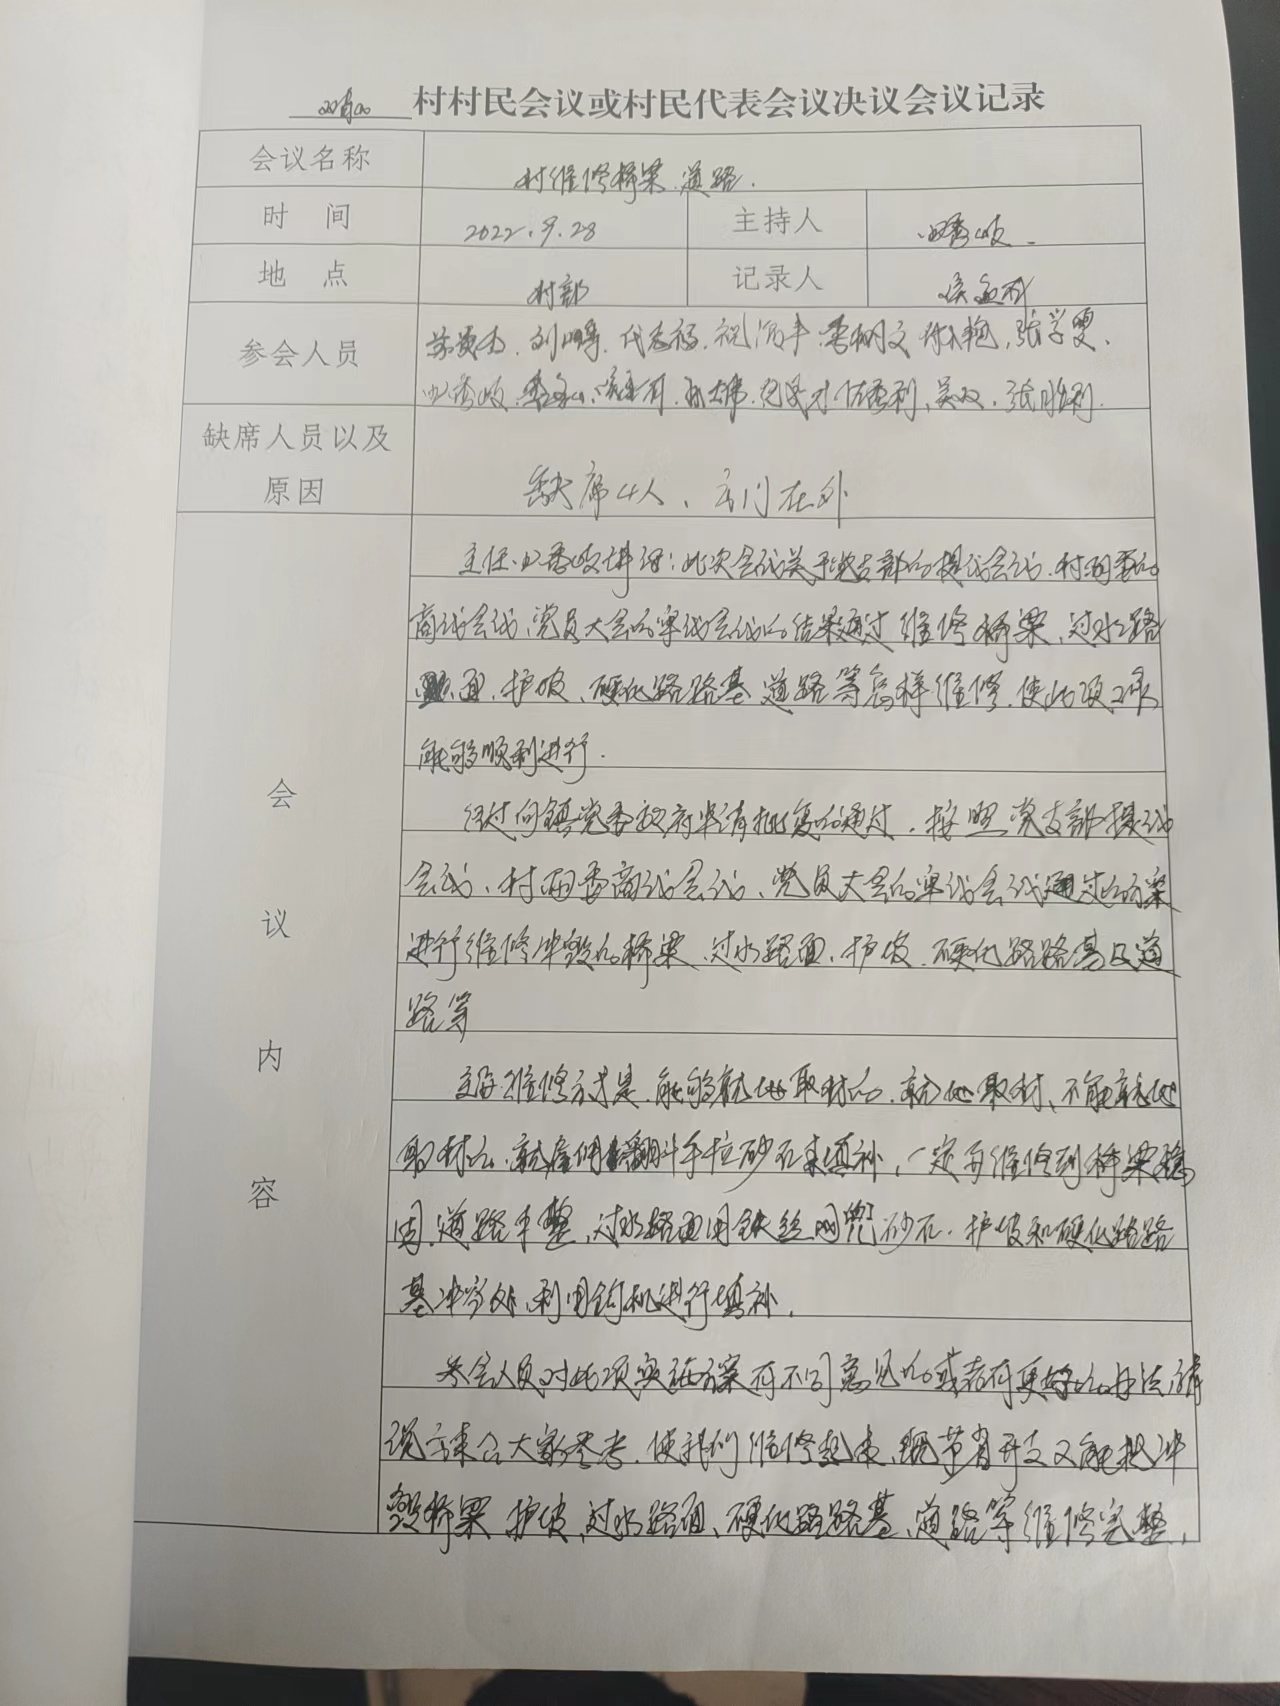 村村民会议或村民代表会议决议会议记录
会议名称 村维修桥梁、道路.
时 间 2022.9.28 主持人
地 点 村部 记录人
参会人员 刘 代志福、祝 李树文 张学
张胜利.
缺席人员以及原因 缺席4人、出门在外
会议内容
主任 讲话:此次会议关于党支部的提议会议、村两委的
商议会议、党员大会的审议会议的结果通过维修桥梁、过水路
面、护坡、硬化路路基道路等怎样维修,使此项工作
能够顺利进行.
经过向镇党委政府申请批复的通过,按照党支部提议
会议、村两委商议会议、党员大会的审议会议通过的方案
进行维修冲毁的桥梁、过水路面、护坡、硬化路路基及道
路等
主要维修方式是,能够就地取材的,就地取材、不能就地
取材的,就雇佣翻斗车拉砂石来填补,一定要维修到桥梁稳
固、道路平整,过水路面用铁丝网兜砂石,护坡和硬化路路
基冲空处,利用钩机进行填补.
参会人员对此项实施方案有不同意见的或者有更好的办法请
说出来会大家参考,使我们维修起来,既节省开支又能把冲
毁桥梁 护坡、过水路面、硬化路路基、道路等维修完整,